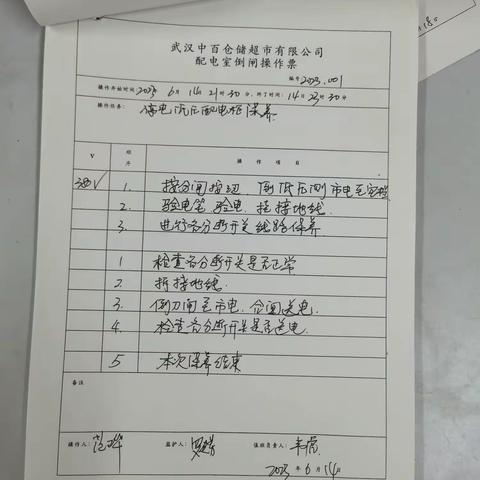 武汉中百仓储超市有限公司
配电室倒闸操作票
编号2023.001
操作开始时间:2023年 6月 14日 21时30分、终了时间: 14日 23时30分
操作任务: 停电 低压配电柜保养
V 顺序 操作项目
380V 1. 按分闸按钮, 倒低压侧市电至空档
2. 验电笔验电, 挂接地线.
3. 进行各分断开关线路保养
1 检查各分断开关是否正常
2. 拆接地线.
3. 倒刀闸至市电, 合闸送电.
4. 检查各分断开关是否送电
5 本次保养结束
备注
操作人: 监护人: 值班负责人:
2023年6月14日